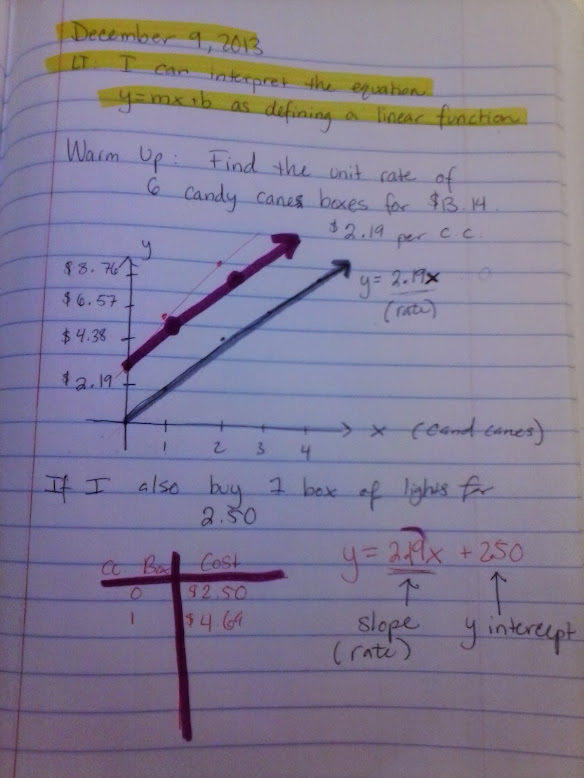 December 9, 2013
LT: I can interpret the equation
y=mx+b as defining a linear function
Warm Up: Find the unit rate of
6 candy canes boxes for $13.14.
$2.19 per c.c.
y
$8.76
$6.57
$4.38
$2.19
y= 2.19x
(rate)
1 2 3 4
x (cand canes)
If I also buy 1 box of lights for
2.50
CC Box Cost
0 $2.50
1 $4.69
y= 2.19x + 250
slope
(rate)
y intercept